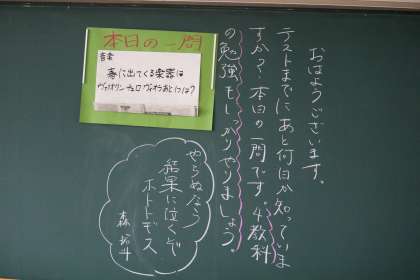 おはようございます。
テストまでにあと何日か知っていま
すか？本日の一問です。4教科
の勉強もしっかりやりましょう。
本日の一問
音楽
春に出てくる楽器は
ヴァイオリン チェロ ヴィオラあと1つは？
やらぬなら
結果に泣くぞ
ホトトギス
森